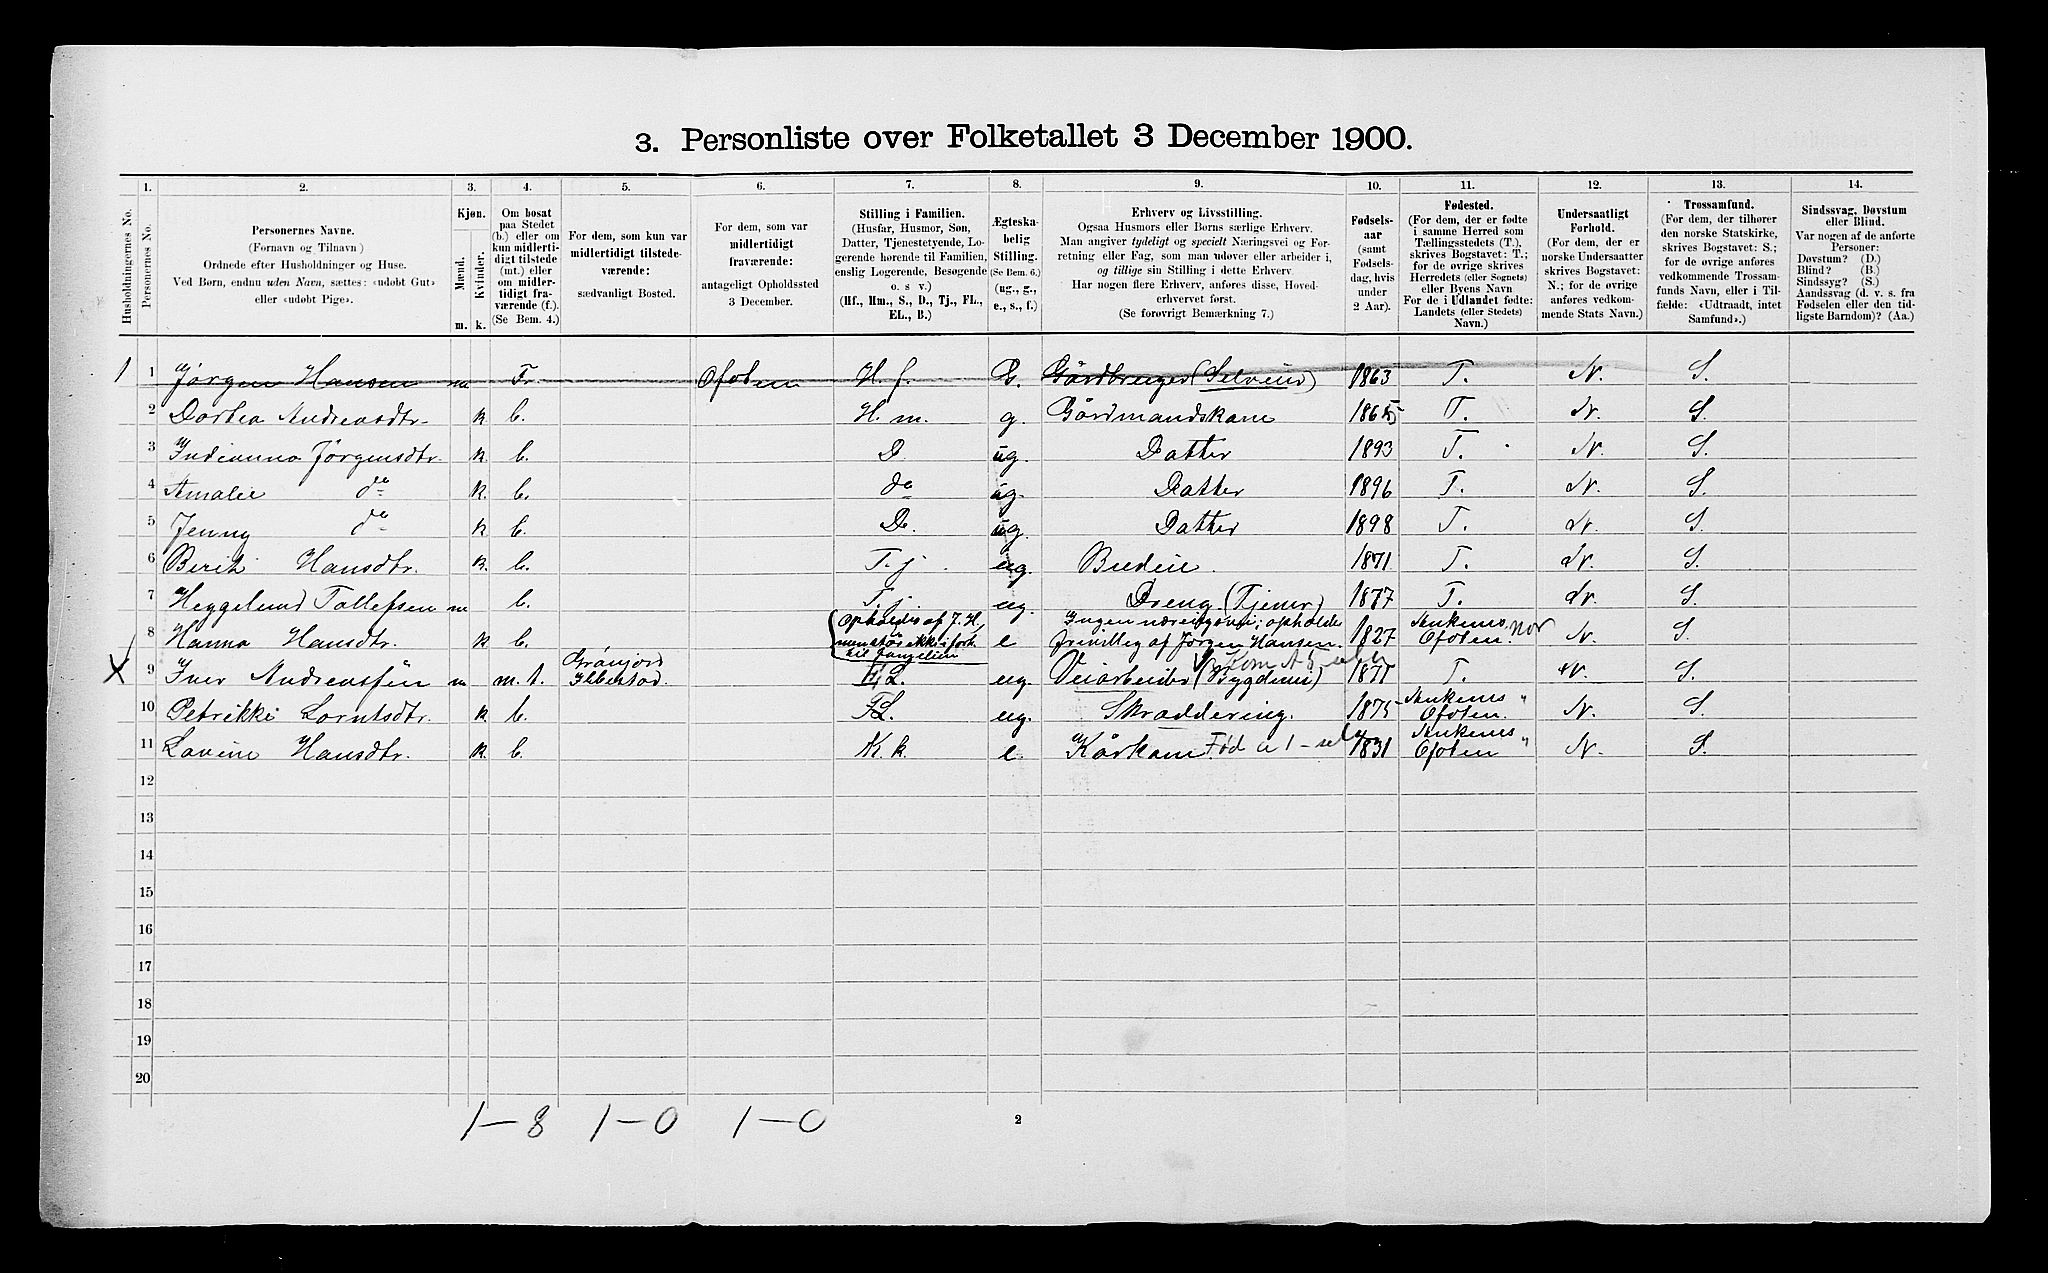 3. Personliste over Folketallet 3 December 1900.
1. 2. 3. 4. 5. 6. 7. 8. 9. 10. 11. 12. 13. 14.
Husholdningernes No.
Personernes No.
Personernes Navne.
(Fornavn og Tilnavn)
Ordnede efter Husholdninger og Huse.
Ved Børn, endnu uden Navn, sættes: «udøbt Gut»
eller «udøbt Pige».
Kjøn.
Mænd.
Kvinder.
m. k.
Om bosat
paa Stedet
(b.) eller om
kun midlerti-
digt tilstede
(mt.) eller
om midler-
tidigt fra-
værende (f.).
(Se Bem. 4.)
For dem, som kun var
midlertidigt tilstede-
værende:
sædvanligt Bosted.
For dem, som var
midlertidigt
fraværende:
antageligt Opholdssted
3 December.
Stilling i Familien.
(Husfar, Husmor, Søn,
Datter, Tjenestetyende, Lo-
gerende hørende til Familien,
enslig Logerende, Besøgende
o. s v.)
(Hf., Hm., S., D., Tj., FL.,
EL., B.)
Ægteska-
belig
Stilling.
(Se Bem. 6.)
(ug., g.,
e., s., f.)
Erhverv og Livsstilling.
Ogsaa Husmors eller Børns særlige Erhverv.
Man angiver tydeligt og specielt Næringsvei og For-
retning eller Fag, som man udøver eller arbeider i,
og tillige sin Stilling i dette Erhverv.
Har nogen flere Erhverv, anføres disse, Hoved-
erhvervet først.
(Se forøvrigt Bemærkning 7.)
Fødsels-
aar
(samt
Fødsels-
dag, hvis
under
2 Aar).
Fødested.
(For dem, der er fødte
i samme Herred som
Tællingsstedets (T.),
skrives Bogstavet: T.;
for de øvrige skrives
Herredets (eller Sognets)
eller Byens Navn
For de i Udlandet fødte:
Landets (eller Stedets)
Navn.)
Undersaatligt
Forhold.
(For dem, der er
norske Undersaatter
skrives Bogstavet:
N.; for de øvrige
anføres vedkom-
mende Stats Navn.)
Trossamfund.
(For dem, der tilhører
den norske Statskirke,
skrives Bogstavet: S.;
for de øvrige anføres
vedkommende Trossam-
funds Navn, eller i Til-
fælde: «Udtraadt, intet
Samfund».)
Sindssvag, Døvstum
eller Blind.
Var nogen af de anførte
Personer:
Døvstum? (D.)
Blind? (B.)
Sindssyg? (S.)
Aandssvag (d. v. s. fra
Fødselen eller den tid-
ligste Barndom)? (Aa.)
1 1 Jørgen Hansen m Fr. Ofoten H. f. G. Gårdbruger (Selveier) 1863 T. N. S.
2 Dorhea Andreasdtr. k b. H. m. g. Gårdmandskone 1865 T. N. S.
3 Indianna Jørgensdtr. k. b. D ug. Datter 1893 T. N. S.
4 Amalie do k. b. do ug. Datter 1896 T. N. S.
5 Jenny do k b. D. ug. Datter 1898 T. N. S.
6 Berit Hansdtr. k. b. T. j ug. Budeie. 1871 T. N. S.
7 Heggelund Tollefsen m b. T. j. ug. Dreng. (Tjener) 1877 T. N. S.
Opholdes af J. H. Ingen næreigsvei; opholdes Ankenes
8 Hanna Hansdtr. k b. men står ikke i forh. e frivillig af Jørgen Hansen. 1827 Ofoten. Nor N. S.
til familien
Grånjord
X 9 Iver Andreassen m m. t. Ibbestad. F L. ug. Veiarbeider (Bygdevei) 1877 T. N. S.
10 Petrikke Lorntsdtr. k b. FL. ug. Skræddering. 1875 Ankenes Ofoten. " N. S.
11 Lovine Hansdtr. k b. K. k. e. Kårkone. Fød a 1 - selv 1831 Ankenes Ofoten " N. S.
12
13
14
15
16
17
18
19
20
1 – 8 1 – 0 1 – 0
2